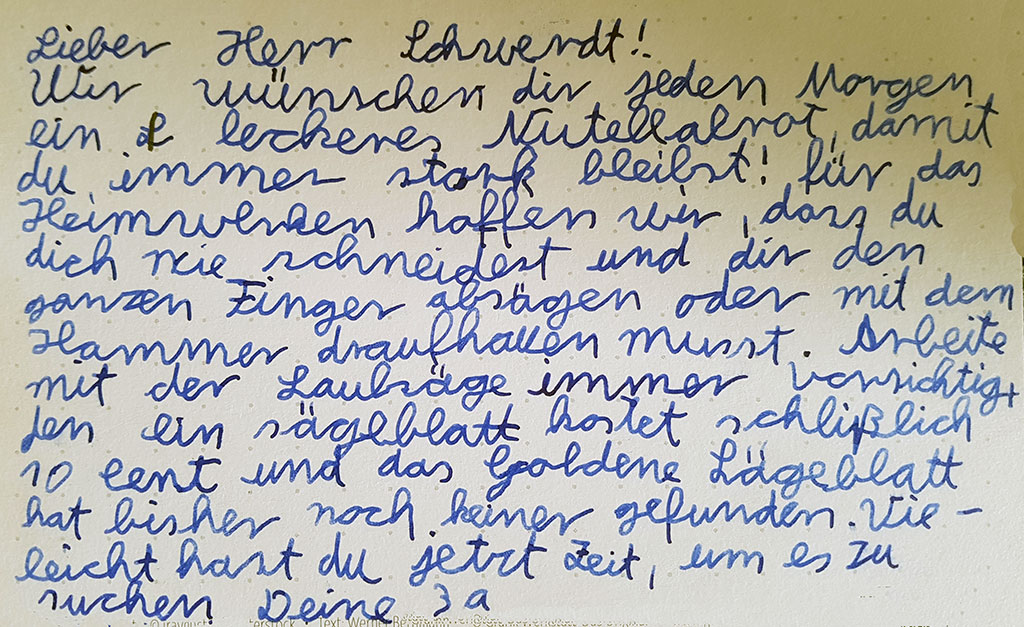 Lieber Herr Schwerdt!
Wir wünschen dir jeden Morgen
ein leckeres Nutellabrot, damit
du immer stark bleibst! für das
Heimwerken hoffen wir, dass du
dich nie schneidest und dir den
ganzen Finger absägen oder mit dem
Hammer draufhauen musst. Arbeite
mit der Laubsäge immer vorsichtig,
den ein sägeblatt kostet schlißlich
10 cent und das Goldene Sägeblatt
hat bisher noch keiner gefunden. Vie-
leicht hast du jetzt Zeit, um es zu
suchen! Deine 3a